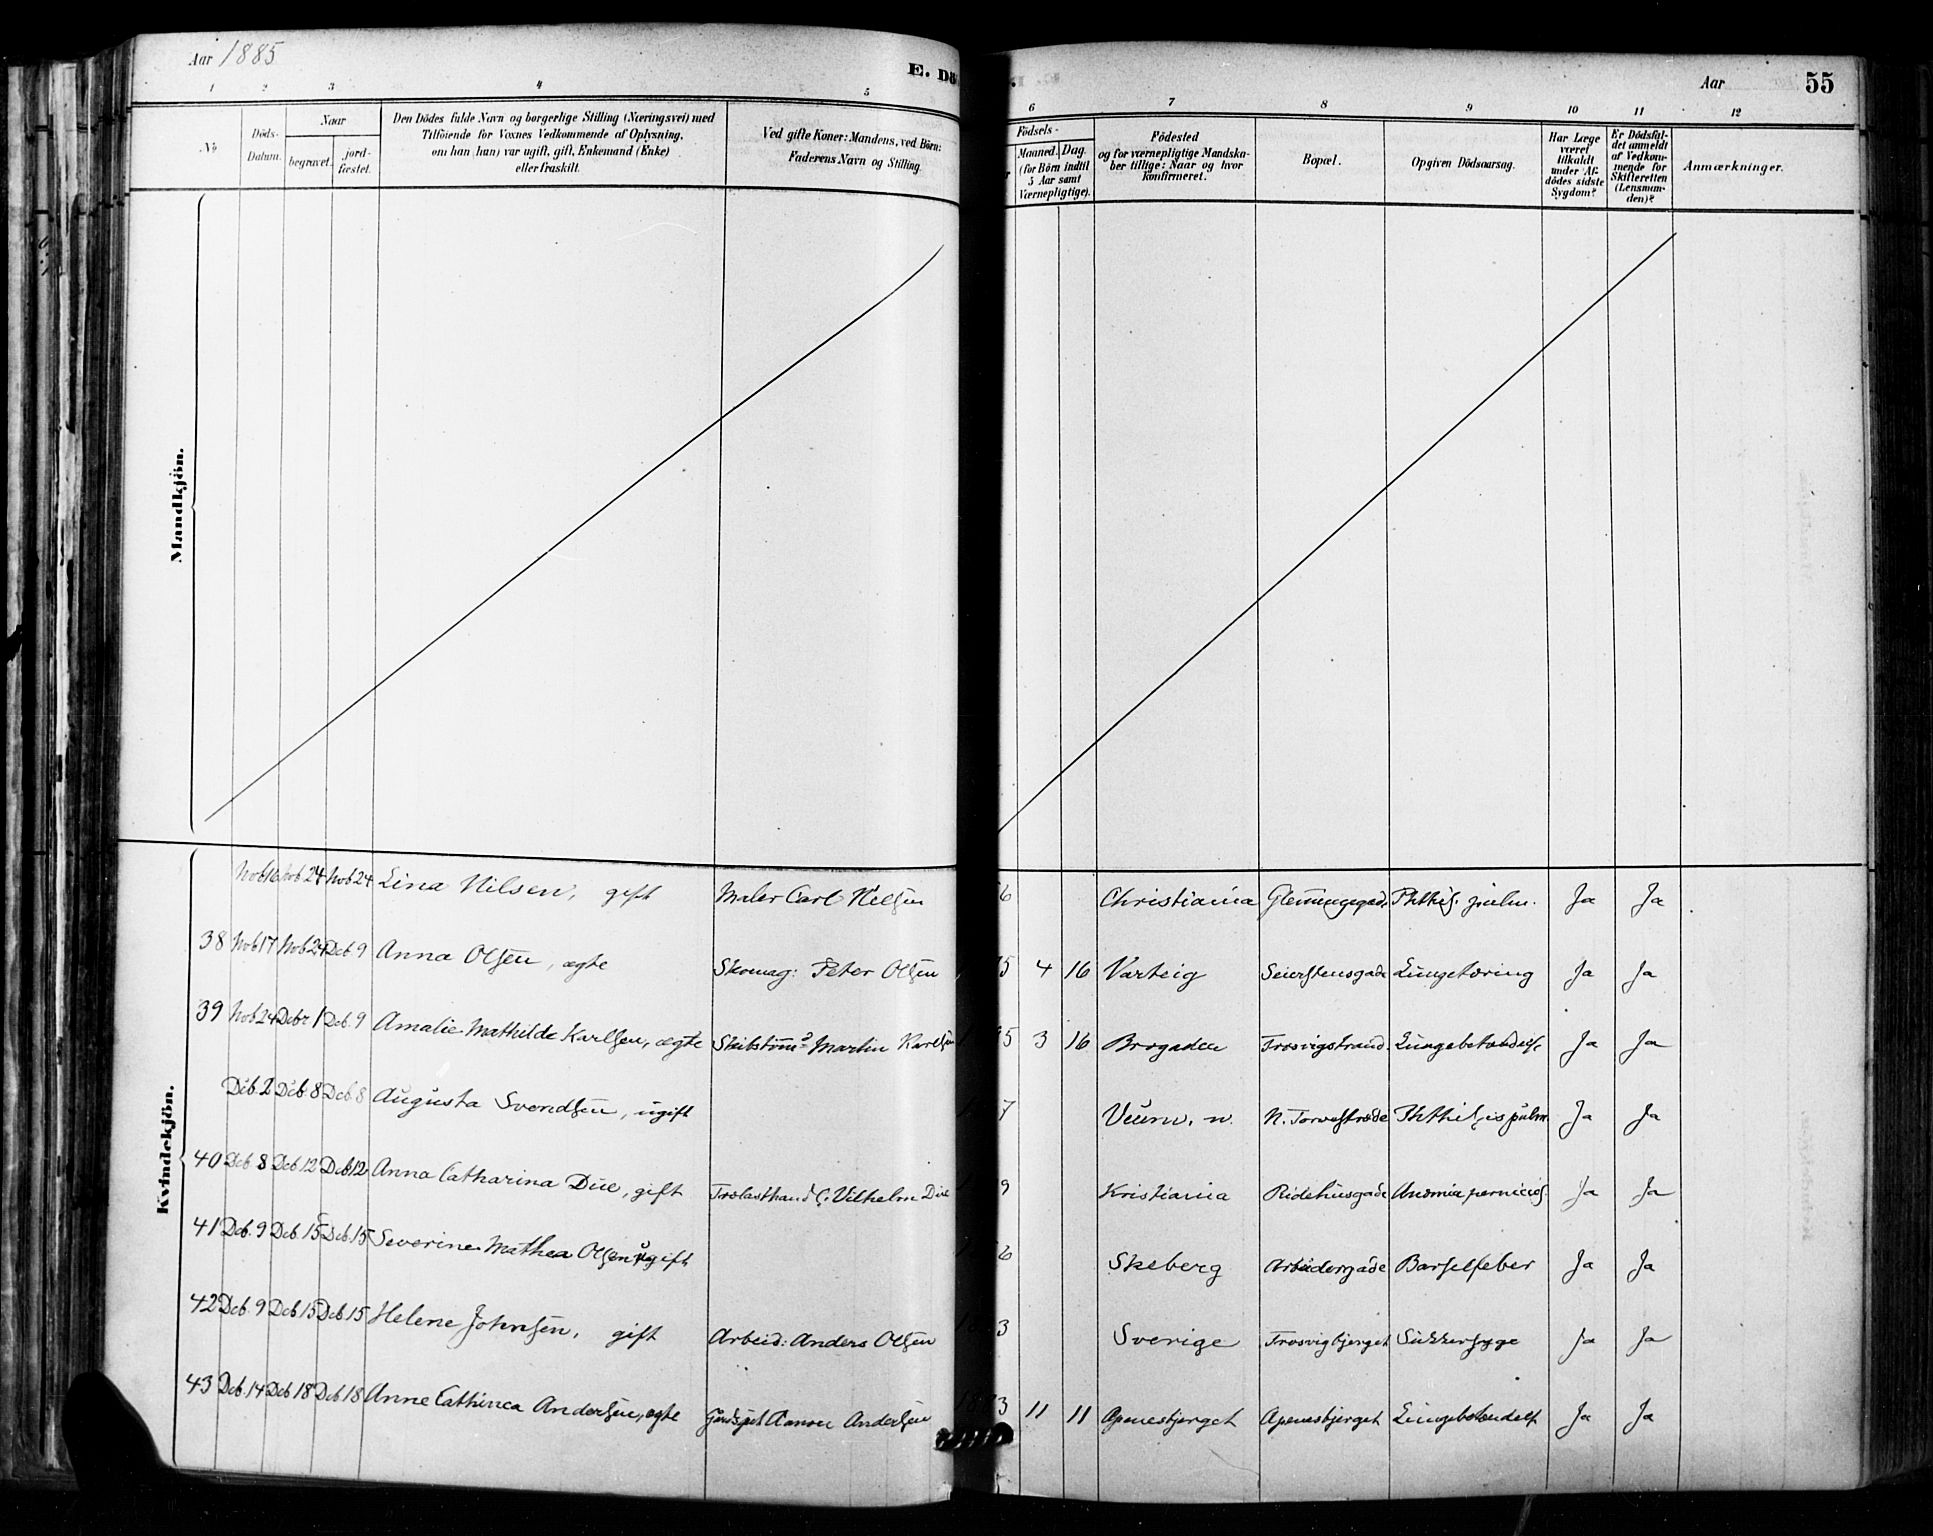 Aar 1885
E. Dö
Aar
55
1 2 3 4 5 6 7 8 9 10 11 12
No
Döds-
Datum.
Naar
begravet.
jord-
fæstet.
Den Dödes fulde Navn og borgerlige Stilling (Næringsvei) med
Tilföiende for Voxnes Vedkommende af Oplysning,
om han (hun) var ugift, gift, Enkemand (Enke)
eller fraskilt.
Ved gifte Koner: Mandens, ved Börn:
Faderens Navn og Stilling.
Födsels-
Maaned. Dag.
(for Börn indtil
5 Aar samt
Værnepligtige).
Födested
og for værnepligtige Mandska-
ber tillige: Naar og hvor
Konfirmeret.
Bopæl.
Opgiven Dödsaarsag.
Har Læge
været
tilkaldt
under Af-
dödes sidste
Sygdom?
Er Dödsfal-
det anmeldt
af Vedkom-
mende for
Skifteretten
(Lensman-
den)?
Anmærkninger.
Mandkjön.
Kvindekjön.
Nob 16 Nob 24 Nob 24 Lina Nilsen, gift Maler Carl Nielsen 6 Christiania Glemmengade Phthis. pulm. Ja Ja
38 Nob 17 Nob 24 Deb. 9 Anna Olsen, ægte Skomag: Peter Olsen 5 4 16 Varteig Seierstensgade Lungetæring Ja Ja
39 Nob 24 Debr 1 Deb. 9 Amalie Mathilde Karlsen, ægte Skibstømr Martin Karlsen 5 3 16 Brogaden Trosvigstrand. Lungebetændelse Ja Ja
Deb. 2 Deb. 8 Deb. 8 Augusta Svendsen, ugift 7 Veum. N. Torvestræde Phthisis pulm. Ja Ja
40 Deb. 8 Deb 12 Deb 12 Anna Catharina Due, gift Trælasthand C. Vilhelm Due 9 Kristiania Ridehusgade Anæmia pernicios. Ja Ja
41 Deb. 9 Deb. 15 Deb. 15 Severine Mathea Olsen ugift 6 Skeberg Arbeidergade Barselfeber Ja Ja
42 Deb. 9 Deb 15 Deb 15 Helene Johnsen, gift Arbeid: Anders Olsen 3 Sverige Trosvigbjerget Sukkersyge Ja Ja
43 Deb. 14 Deb 18 Deb 18 Anne Cathinca Andersen, ægte Aanon Andersen 3 11 11 Apenesbjerget Apenesbjerget Lungebetændelse Ja Ja